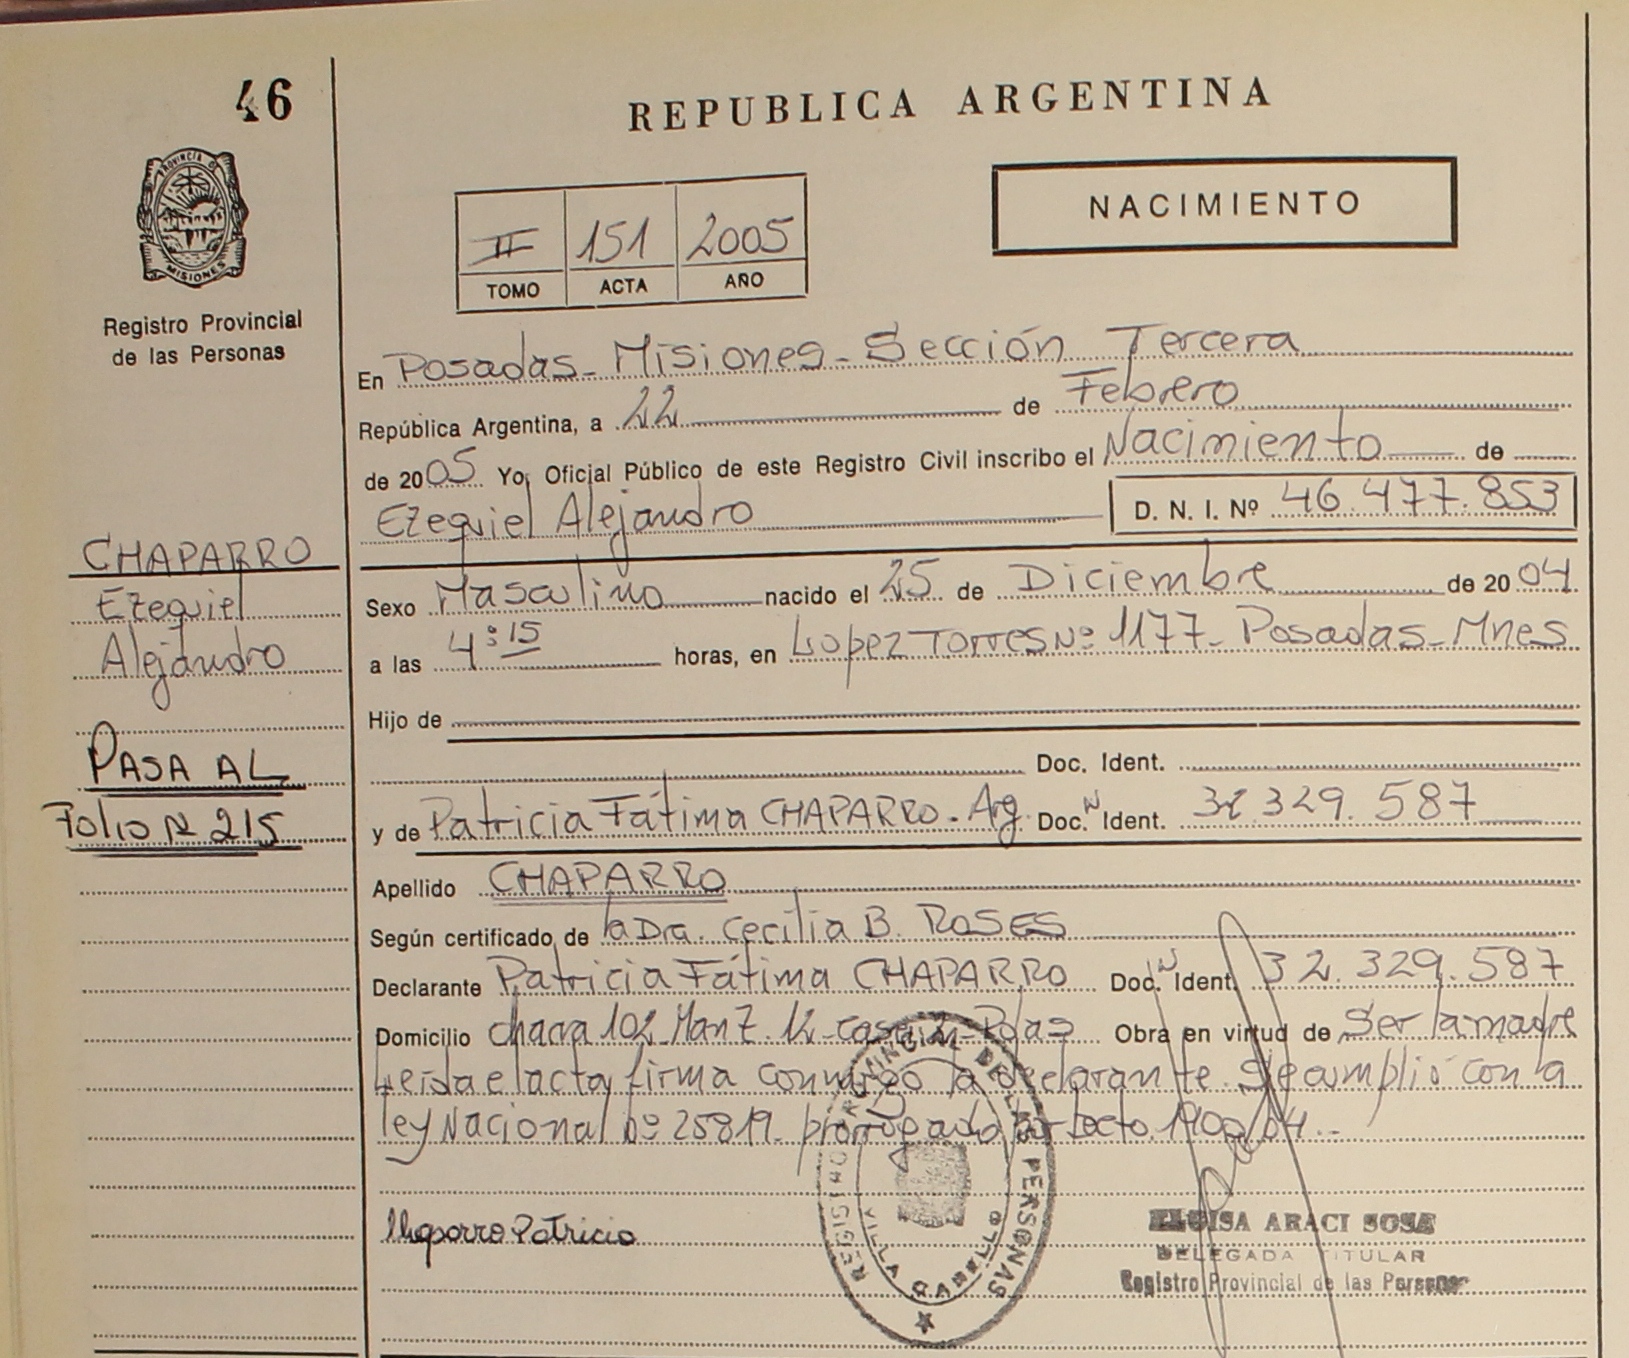 46
REPUBLICA ARGENTINA
PROVINCIA DE
MISIONES
Registro Provincial
de las Personas
NACIMIENTO
II 151 2005
TOMO ACTA AÑO
En Posadas - Misiones - Sección Tercera
República Argentina, a 22 de Febrero
de 2005 Yo, Oficial Público de este Registro Civil inscribo el Nacimiento de
Ezequiel Alejandro D. N. I. Nº 46.477.853
CHAPARRO
Ezequiel
Alejandro
Sexo Masculino nacido el 25 de Diciembre de 2004
a las 4:15 horas, en Lopez Torres Nº 1177 - Posadas - Mnes
Hijo de
Doc. Ident.
PASA AL
Folio N 215
y de Patricia Fátima CHAPARRO - Arg. Doc. N Ident. 32.329.587
Apellido CHAPARRO
Según certificado de la Dra. Cecilia B. ROSES
Declarante Patricia Fátima CHAPARRO Doc. N Ident. 32.329.587
Domicilio chacra 102 Manz. 12 - casa - Pdas Obra en virtud de Ser la madre
Leida el acta, firma conmigo la declarante. Se cumplió con la
ley Nacional Nº 25819 prorrogado por Decto. 1900/04.-
Chaparro Patricia
REGISTRO PROVINCIAL DE LAS PERSONAS
VILLA CABELLO
ELOISA ARACI SOSA
DELEGADA TITULAR
Registro Provincial de las Personas